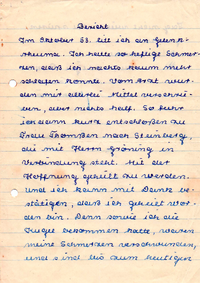 Bericht
Im Oktober 53. litt ich an Gelenk-
rheuma. Ich hatte so heftige Schmer-
zen, daß ich nachts kaum mehr
schlafen konnte. Vom Arzt wur-
den mir allerlei Mittel verschrie-
ben, aber nichts half. So fuhr
ich dann kurz entschlossen zu
Frau Thomßen nach
die mit Herrn Gröning in
Verbindung steht. Mit der
Hoffnung geheilt zu werden.
Und ich kann mit Dank be-
stätigen, daß ich geheilt wor-
den bin. Denn sowie ich die
Kugel bekommen hatte, waren
meine Schmerzen verschwunden,
und sind bis zum heutigen